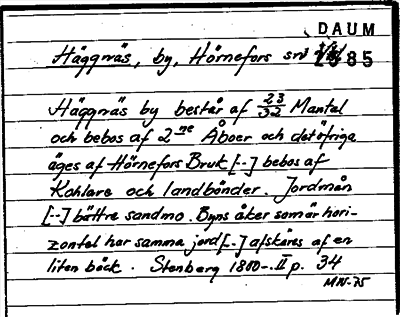 DAUM
Häggnäs, by, Hörnefors sn
2985
Häggnäs by består af 23/32 Mantal
och bebos af 2ne Åboer och det öfriga
äges af Hörnefors Bruk [--] bebos af
Kohlare och landbönder. Jordmån
[--] bättre sandmo. Byns åker som är hori-
zontel har samma jord [--] afskäres af en
liten bäck. Stenberg 1800-. II p. 34
MN-75